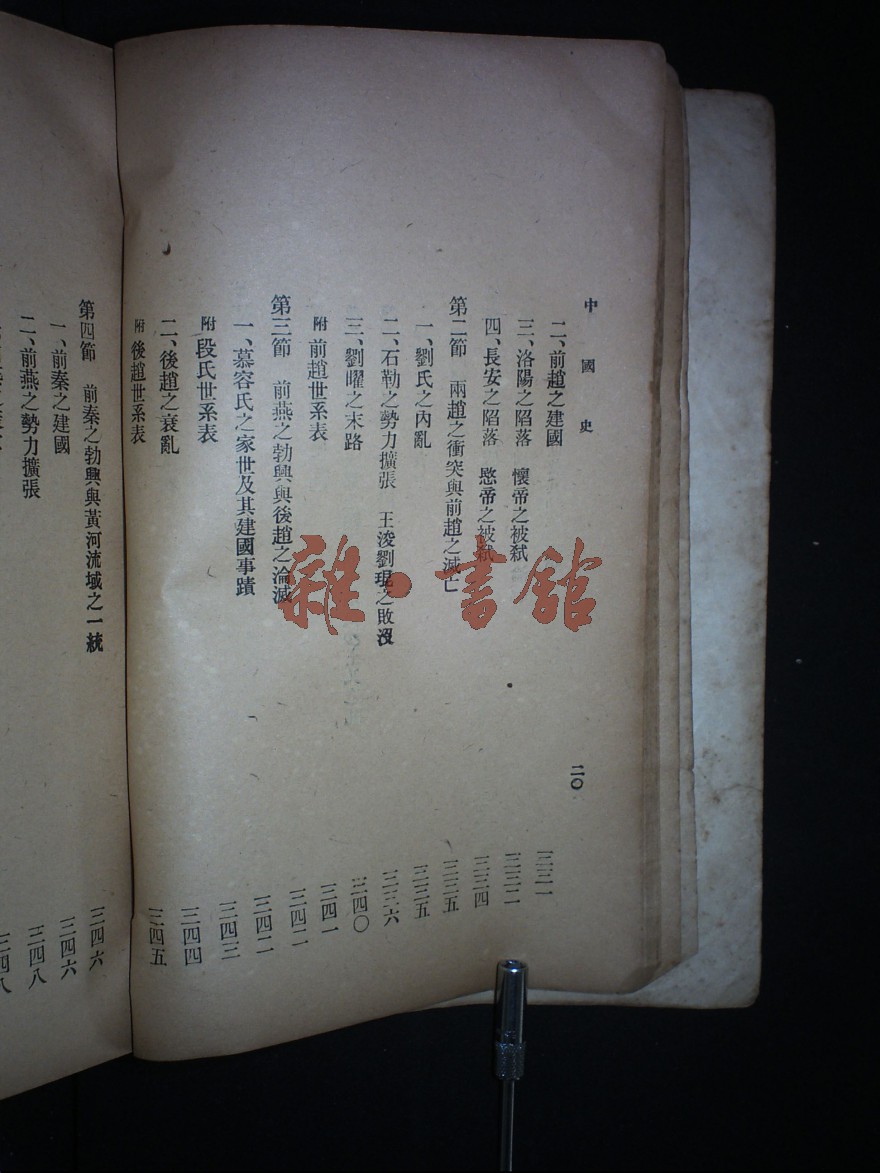 中國史
二〇
二、前趙之建國 三三一
三、洛陽之陷落 懷帝之被弒 三三二
四、長安之陷落 愍帝之被弒 三三四
第二節 兩趙之衝突與前趙之滅亡 三三五
一、劉氏之內亂 三三五
二、石勒之勢力擴張 王浚劉琨之敗沒 三三六
三、劉曜之末路 三四〇
附 前趙世系表 三四一
第三節 前燕之勃興與後趙之淪滅 三四二
一、慕容氏之家世及其建國事蹟 三四二
附 段氏世系表 三四三
二、後趙之衰亂 三四四
附 後趙世系表 三四五
第四節 前秦之勃興與黃河流域之一統 三四六
一、前秦之建國 三四六
二、前燕之勢力擴張 三四八
三四八
雜·書館